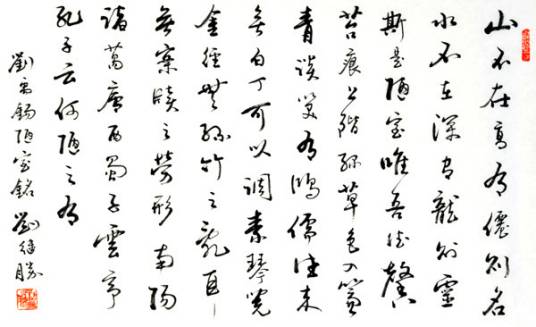 山不在高有僊則名
水不在深有龍則靈
斯是陋室唯吾德馨
苔痕上階綠草色入簾
青談笑有鴻儒往來
無白丁可以調素琴閱
金經無絲竹之亂耳
無案牘之勞形南陽
諸葛廬西蜀子雲亭
孔子云何陋之有
劉禹錫陋室銘